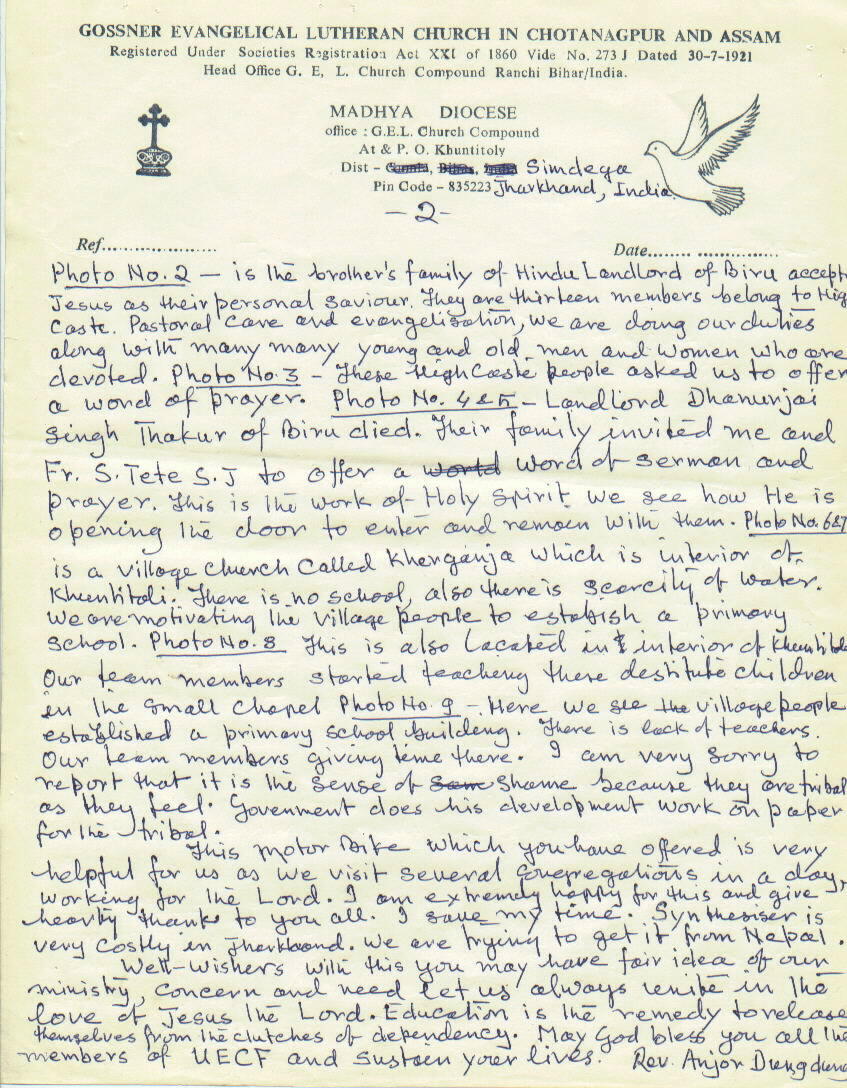 GOSSNER EVANGELICAL LUTHERAN CHURCH IN CHOTANAGPUR AND ASSAM
Registered Under Societies Registration Act XXI of 1860 Vide No. 273 J Dated 30-7-1921
Head Office G. E, L. Church Compound Ranchi Bihar/India.
MADHYA DIOCESE
office : G.E.L. Church Compound
At & P. O. Khuntitoly
Dist - Gumla, Bihar, India Simdega
Pin Code - 835223 Jharkhand, India.
- 2 -
Ref..................... Date........ ...............
Photo No. 2 - is the brother's family of Hindu Landlord of Biru accept
Jesus as their personal saviour. They are thirteen members belong to Hig
Caste. Pastoral Care and evangelisation, we are doing our duties
along with many many young and old men and women who are
devoted. Photo No. 3 - These High Caste people asked us to offer
a word of prayer. Photo No. 4 & 5 - Landlord Dhanurjai
Singh Thakur of Biru died. Their family invited me and
Fr. S. Tete S.J to offer a world word of sermon and
prayer. This is the work of Holy Spirit we see how He is
opening the door to enter and remain with them. Photo No. 6&7
is a village church called Kherganja which is interior of
Khuntitoli. There is no school, also there is scarcity of water.
We are motivating the village people to establish a primary
school. Photo No. 8 This is also located in interior of Khuntitoli
Our team members started teaching there destitute children
in the small chapel Photo No. 9 - Here we see the village people
established a primary school building. There is lack of teachers.
Our team members giving time there. I am very sorry to
report that it is the sense of Shame because they are tribal
as they feel. Govenment does his development work on paper
for the tribal.
This motor Bike which you have offered is very
helpful for us as we visit several congregations in a day,
working for the Lord. I am extremely happy for this and give
hearty thanks to you all. I save my time. Synthesiser is
very costly in Jharkhand. We are trying to get it from Nepal.
Well-wishers with this you may have fair idea of our
ministry, concern and need let us always unite in the
love of Jesus the Lord. Education is the remedy to release
themselves from the clutches of dependency. May God bless you all the
members of UECF and sustain your lives. Rev. Anjor Dungdung